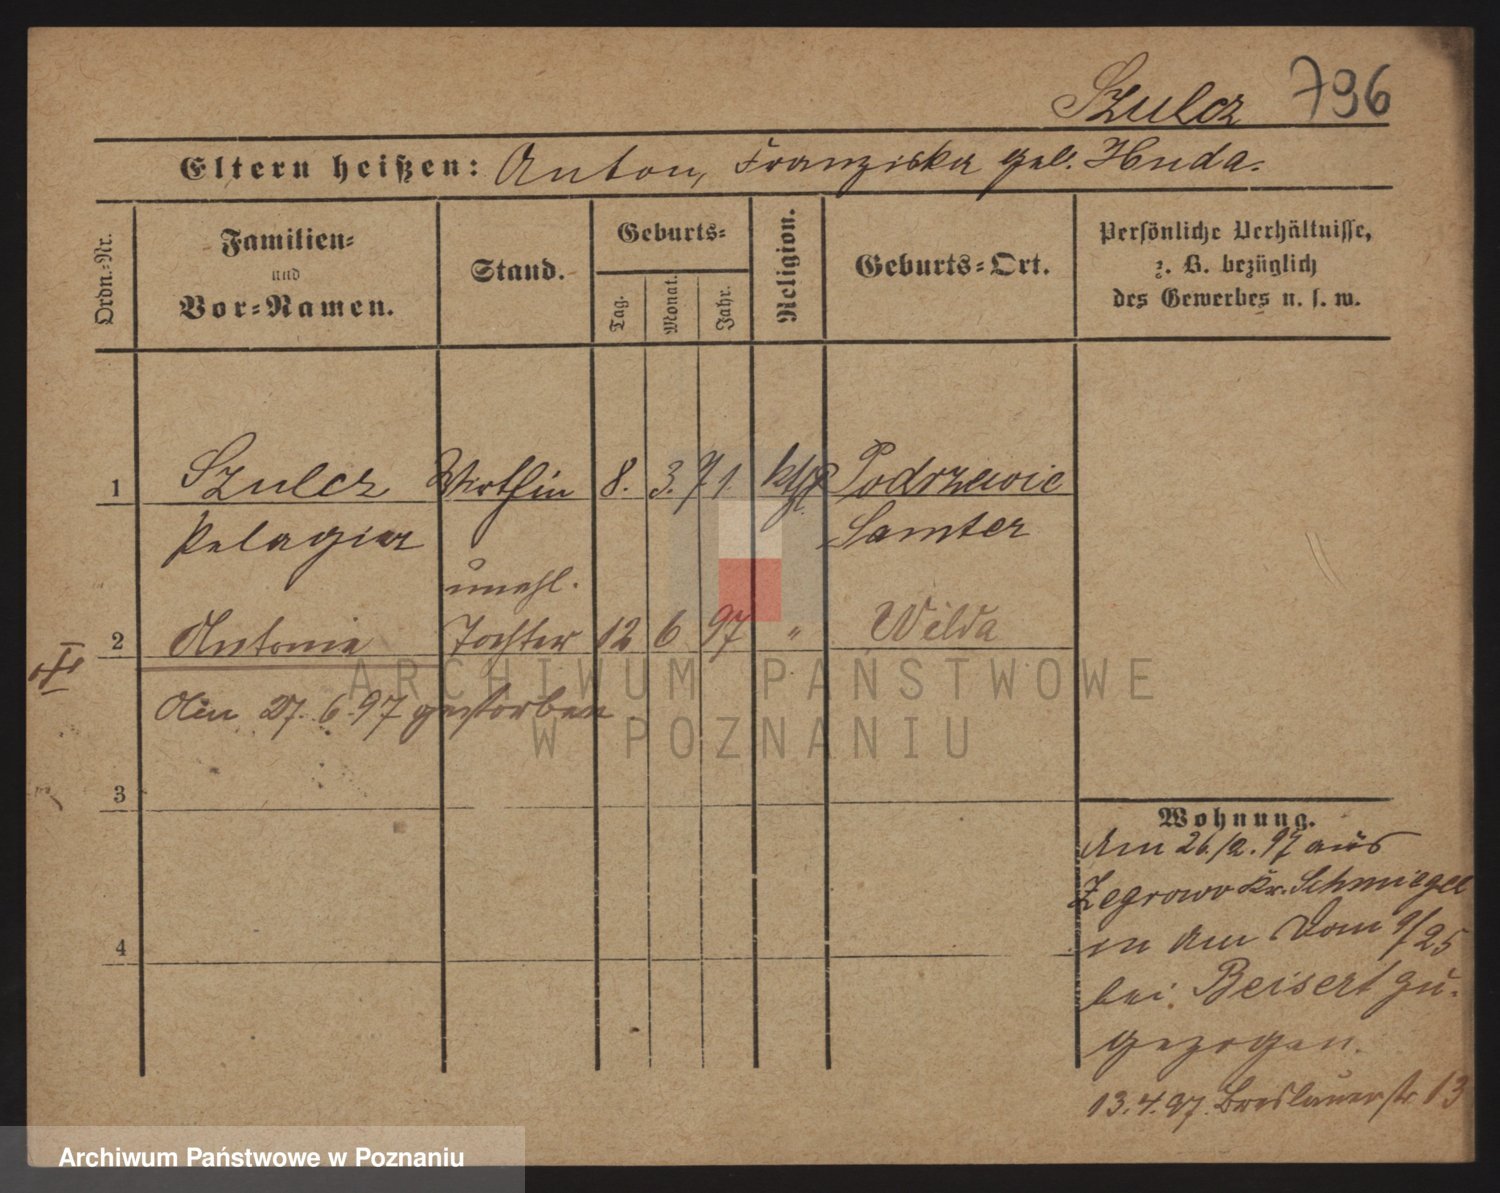 Szulcz 796
Eltern heißen: Anton, Franziska geb. Huda.
Ordn.=Nr.
Familien=
und
Vor=Namen.
Stand.
Geburts=
Tag.
Monat.
Jahr.
Religion.
Geburts=Ort.
Persönliche Verhältnisse,
z. B. bezüglich
des Gewerbes u. s. w.
1 Szulcz Wirthin 8. 3. 71 kth. Podrzewie
Pelagia Samter
unehl.
2 Antonie Tochter 12 6 97 " Wilda
Am 27. 6. 97 gestorben
3
4
Wohnung.
Am 26/2. 97 aus
Zegrowo Kr. Schmiegel
in Am Dom 9/25
bei Beisert zu-
gezogen.
13.4.97. Breslauerstr. 13
ARCHIWUM PAŃSTWOWE
W POZNANIU
Archiwum Państwowe w Poznaniu